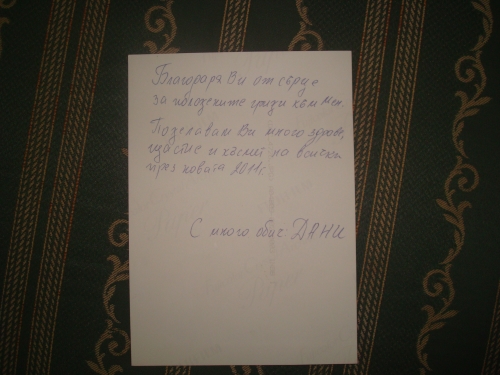 Благодаря Ви от сърце
за положените грижи към мен.
Пожелавам Ви много здраве,
щастие и късмет на всички
през новата 2011г.
С много обич ДАНИ